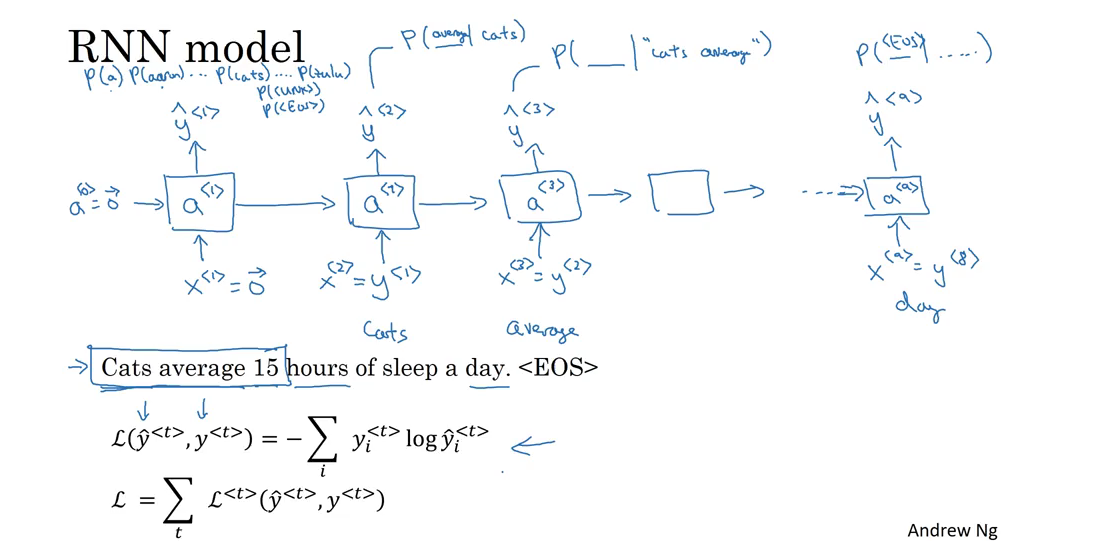 RNN model
P(a) P(aaron) ... P(cats) .... P(zulu)
P(<UNK>)
P(<EOS>)
P(average | cats)
P(__ | "cats average")
P(<EOS> | .....)
ŷ<1> ŷ<2> ŷ<3> ŷ<9>
a<0> = 0⃗ → a<1> → a<2> → a<3> → → ....→ a<9>
x<1> = 0⃗ x<2> = y<1> x<3> = y<2> x<9> = y<8>
Cats average day
→ Cats average 15 hours of sleep a day. <EOS>
ℒ(ŷ<t>, y<t>) = − ∑i yi<t> log ŷi<t> ←
ℒ = ∑t ℒ<t>(ŷ<t>, y<t>)
Andrew Ng